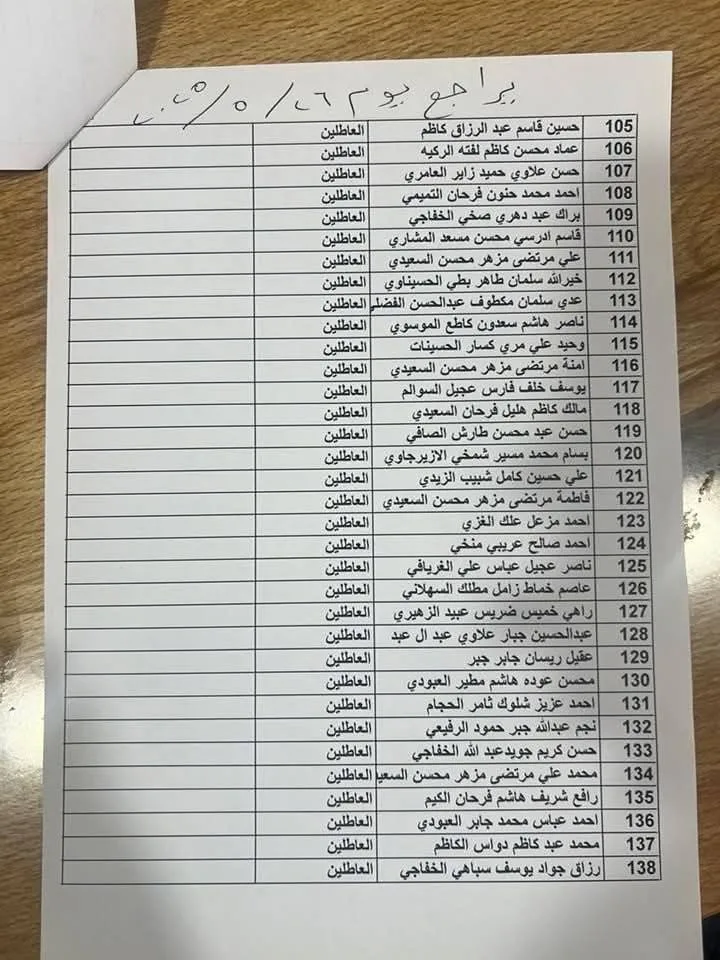 يراجع يوم ٢٦/٥/٢٠٢٥
105 حسين قاسم عبد الرزاق كاظم العاطلين
106 عماد محسن كاظم لفته الركيه العاطلين
107 حسن علاوي حميد زاير العامري العاطلين
108 احمد محمد حنون فرحان التميمي العاطلين
109 براك عبد دهري صخي الخفاجي العاطلين
110 قاسم ادرسي محسن مسعد المشاري العاطلين
111 علي مرتضى مزهر محسن السعيدي العاطلين
112 خيرالله سلمان طاهر بطي الحسيناوي العاطلين
113 عدي سلمان مكطوف عبدالحسن الفضلي العاطلين
114 ناصر هاشم سعدون كاطع الموسوي العاطلين
115 وحيد علي مري كسار الحسينات العاطلين
116 امنة مرتضى مزهر محسن السعيدي العاطلين
117 يوسف خلف فارس عجيل السوالم العاطلين
118 مالك كاظم هليل فرحان السعيدي العاطلين
119 حسن عبد محسن طارش الصافي العاطلين
120 بسام محمد مسير شمخي الازيرجاوي العاطلين
121 علي حسين كامل شبيب الزيدي العاطلين
122 فاطمة مرتضى مزهر محسن السعيدي العاطلين
123 احمد مزعل علك الغزي العاطلين
124 احمد صالح عريبي منخي العاطلين
125 ناصر عجيل عباس علي الغريافي العاطلين
126 عاصم خماط زامل مطلك السهلاني العاطلين
127 راهي خميس ضريس عبيد الزهيري العاطلين
128 عبدالحسين جبار علاوي عبد ال عبد العاطلين
129 عقيل ريسان جابر جبر العاطلين
130 محسن عوده هاشم مطير العبودي العاطلين
131 احمد عزيز شلوك ثامر الحجام العاطلين
132 نجم عبدالله جبر حمود الرفيعي العاطلين
133 حسن كريم جويدعبد الله الخفاجي العاطلين
134 محمد علي مرتضى مزهر محسن السعيد العاطلين
135 رافع شريف هاشم فرحان الكيم العاطلين
136 احمد عباس محمد جابر العبودي العاطلين
137 محمد عبد كاظم دواس الكاظم العاطلين
138 رزاق جواد يوسف سباهي الخفاجي العاطلين